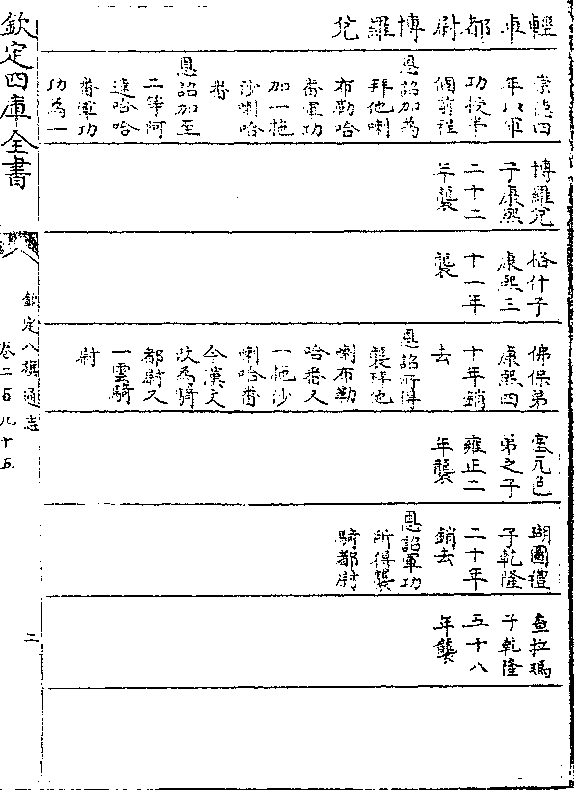 輕車都尉博羅兊
崇德四
年以軍
功授半
個前程
恩詔加為
拜他喇
布勒哈
番軍功
加一拖
沙喇哈
番
恩詔加至
二等阿
達哈哈
番軍功
功為一
博羅兊
子康熙
二十二
年襲
格什子
康熙三
十一年
襲
佛保弟
康熙四
十年銷
去
恩詔所得
襲拜他
喇布勒
哈番又
一拖沙
喇哈番
今漢文
改為騎
都尉又
一雲騎
尉
塞元色
弟之子
雍正二
年襲
瑚圖禮
子乾隆
二十年
銷去
恩詔軍功
所得襲
騎都尉
查拉瑪
子乾隆
五十八
年襲
欽定四庫全書
欽定八旗通志
卷二百九十五
二